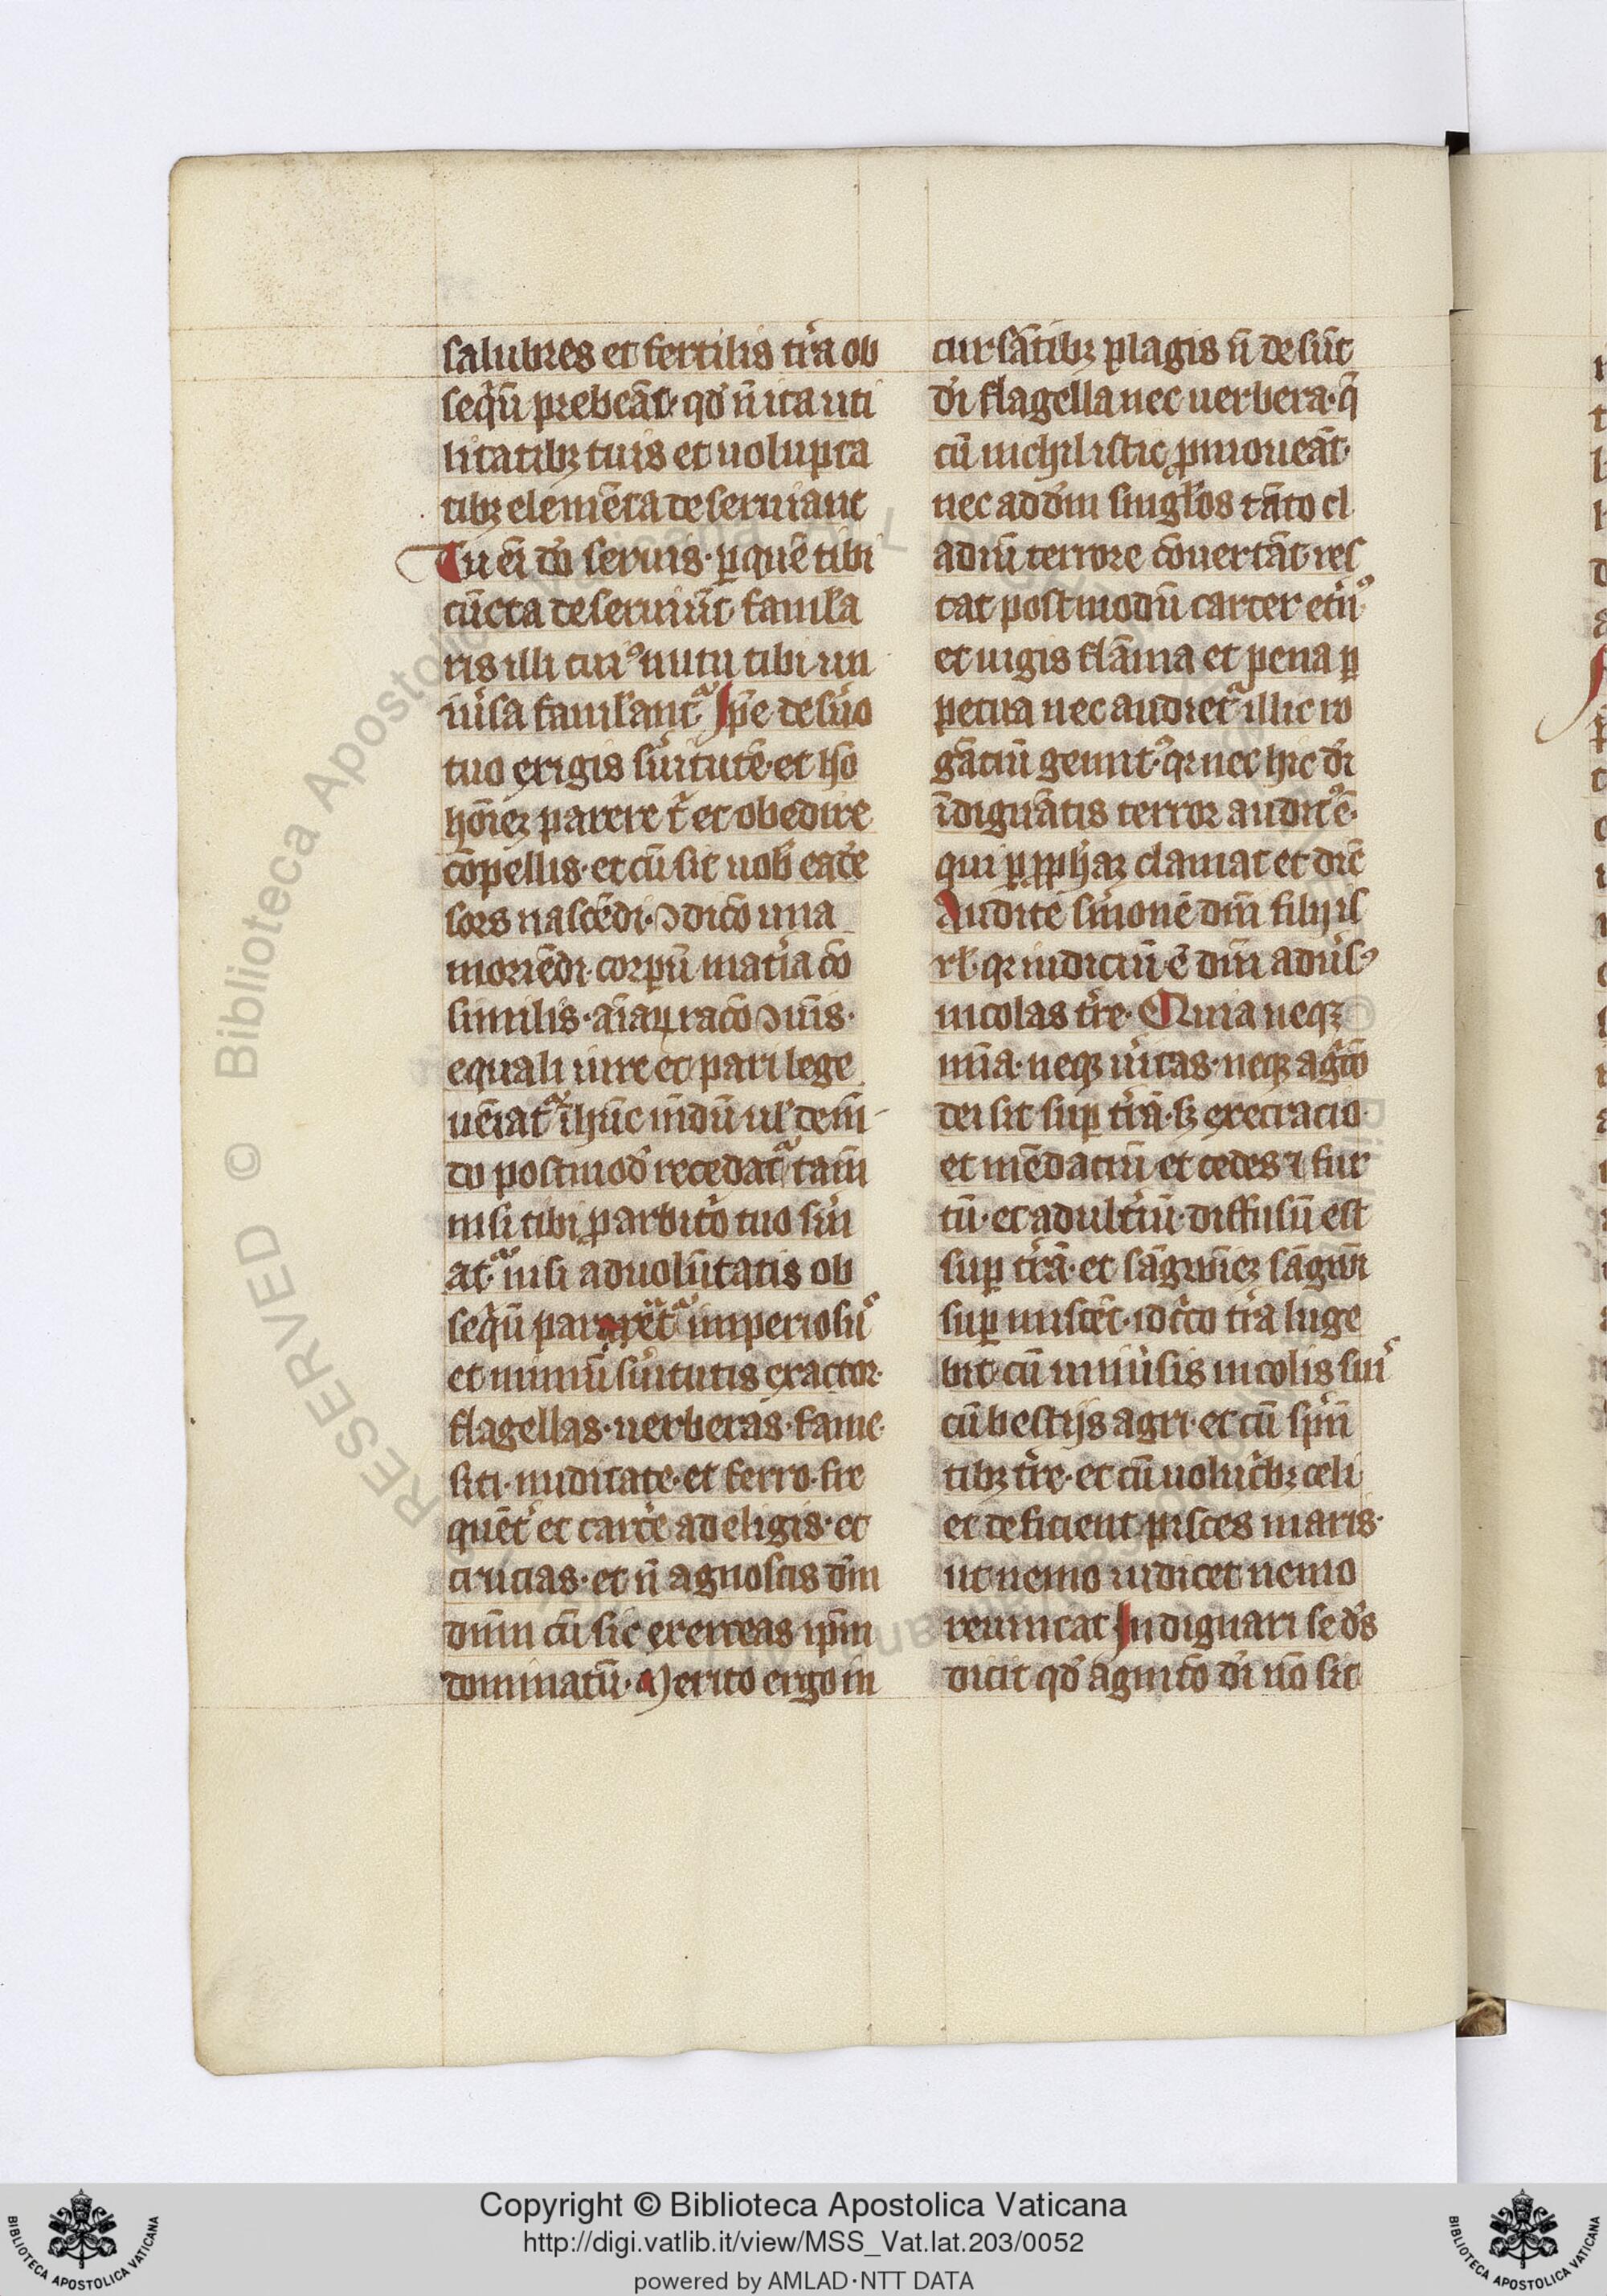 salubres et fertilis tr̄a ob
seq̄ū prebeāt· qd̓ n̄ ita uti
litatibꝫ tuis et uolupta
tibꝫ elemēta deseruiant
Tu ei d̄o seruis· ꝑ quē tibi
cūcta deseruiūt· famła
ris illi cuiꝰ nutu tibi un
iūsa famłant᷑ Ip̄e de s̄uo
tuo exigis s̄uitutē· et h̄o
hōieꝫ parere t̄ et obedire
cōpellis· et cū sit uob̄ eadē
sors nascēdi· ↄdicō una
moriēdi· corpū mat̓ia cō
similis· aīaꝝ racō ↄūis·
equali iure et pari lege
uēiat᷑ ī hūc mūdū ul̓ de m̄
do postmod̓ recedat᷑ tam̄
nisi tibi ꝓ arbitͦ tuo s̄ui
at᷑· nisi ad uolūtatis ob
seq̄ū parareet᷑ imperiosuˢ
et nimiū s̄uitutis exactor·
flagellas· uerberas· fame·
siti· nuditate· et ferro· fre
quēt̓ et carcē adeligis· et
crucias· et n̄ agnoscis dm̄
dm̄m cū sic exerceas ip̄m
dominatū· Merito ergo in
cursātibꝫ plagis n̄ desūt
dı̓ flagella nec uerbera· q̄
cū nichil istic ꝓmoueāt·
nec ad dm̄ singłos tāto cl
adiū terrore ꝯuertāt· res
tat postmodū carcer et̓nꝰ
et uigis flāma et pena ꝑ
petua nec audiet᷑ illic ro
gāciū gemitꝰ· qı nec hic dı̓
īdignātis terror auditꝰ ē·
qui ꝑ ꝓph̄aꝫ clamat et dīc
Audite s̄monē dm̄ filij is
rl̓· qı iudiciū ē dm̄ adūsꝰ
incolas tr̄e· Quia neqꝫ
mīa· neqꝫ ūitas· neqꝫ agͥcō
dei sit suꝑ tr̄ā· sꝫ execracio·
et mēdaciū et cedes ⁊ fur
tū· et adult̓iū· diffusū est
suꝑ tr̄ā· et sāguīeꝫ sāgui
suꝑ miscēt· idͨco tr̄a luge
bit cū uniūsis incolis suiˢ
cū bestijs agri· et cū s̄pn̄
tibꝫ tr̄e· et cū uolucͥbꝫ celi
et deficient pisces maris·
ut nemo iudicet nemo
reuincat Indignari se d̓s
dicit qd̓ agnicō dı̓ nō sit
Copyright © Biblioteca Apostolica Vaticana
http://digi.vatlib.it/view/MSS_Vat.lat.203/0052
powered by AMLAD·NTT DATA